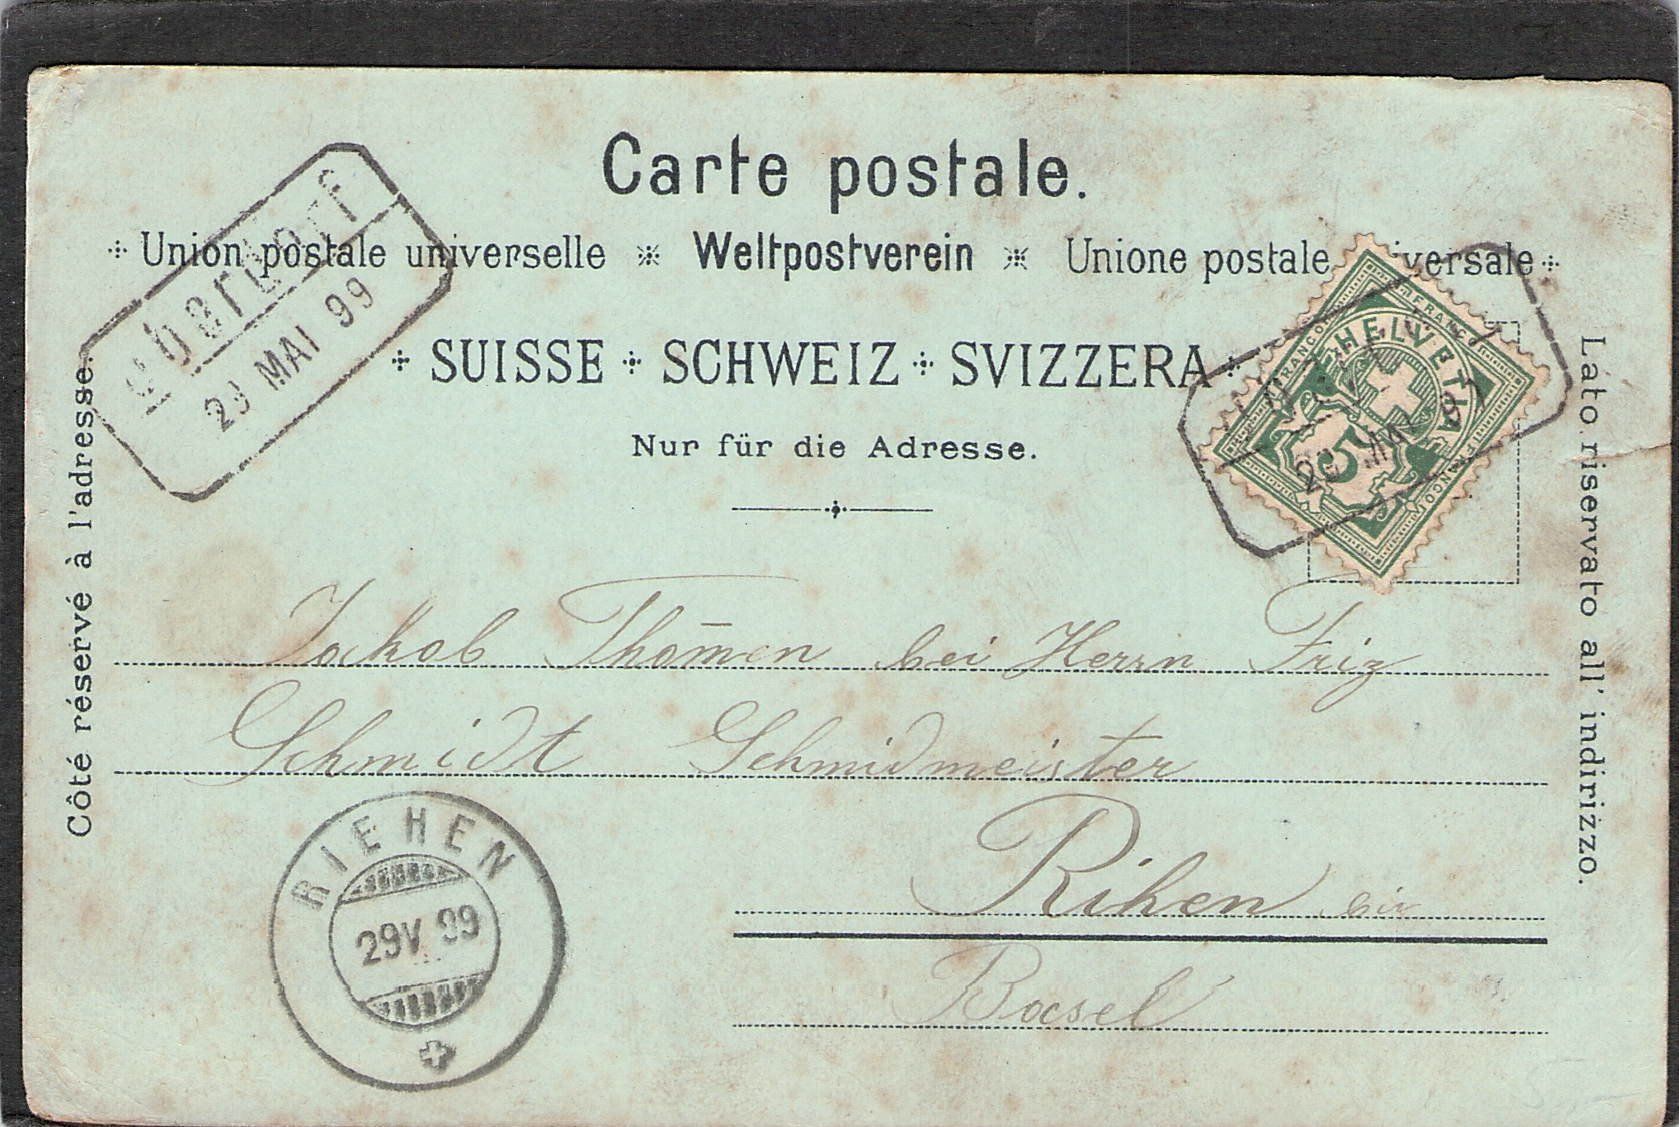 Carte postale.
Union postale universelle ※ Weltpostverein ※ Unione postale universale
SUISSE SCHWEIZ SVIZZERA
Nur für die Adresse.
Côté réservé à l'adresse.
Lato riservato all' indirizzo.
29 MAI 99
FRANCO FRANCO
HELVETIA
5
FRANCO
29 MAI 99
Jackob Thomen bei Herrn Friz
Schmidt Schmidmeister
Rihen bei
Basel
RIEHEN
29 V 99